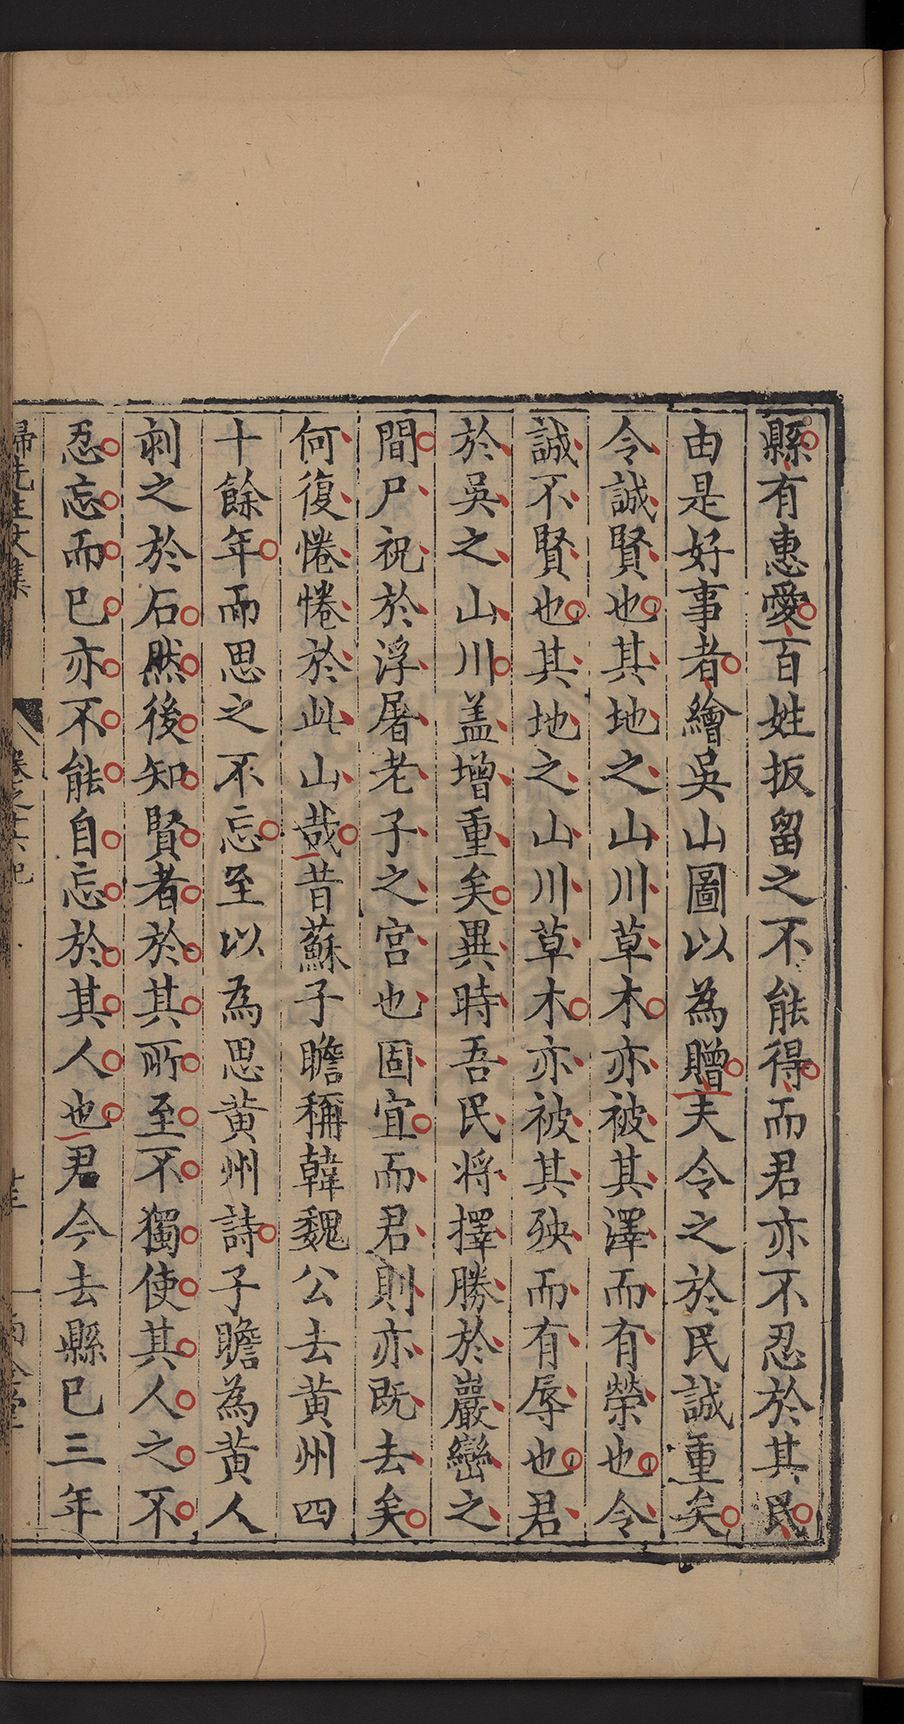 縣有惠愛百姓扳留之不能得而君亦不忍於其民
由是好事者繪吳山圖以為贈夫令之於民誠重矣
令誠賢也其地之山川草木亦被其澤而有榮也令
誠不賢也其地之山川草木亦被其殃而有辱也君
於吳之山川盖增重矣異時吾民将擇勝於巖巒之
間尸祝於浮屠老子之宮也固宜而君則亦既去矣
何復惓惓於此山哉昔蘇子瞻稱韓魏公去黃州四
十餘年而思之不忘至以為思黃州詩子瞻為黃人
刺之於石然後知賢者於其所至不獨使其人之不
忍忘而已亦不能自忘於其人也君今去縣已三年
歸先生文集 卷之十六記